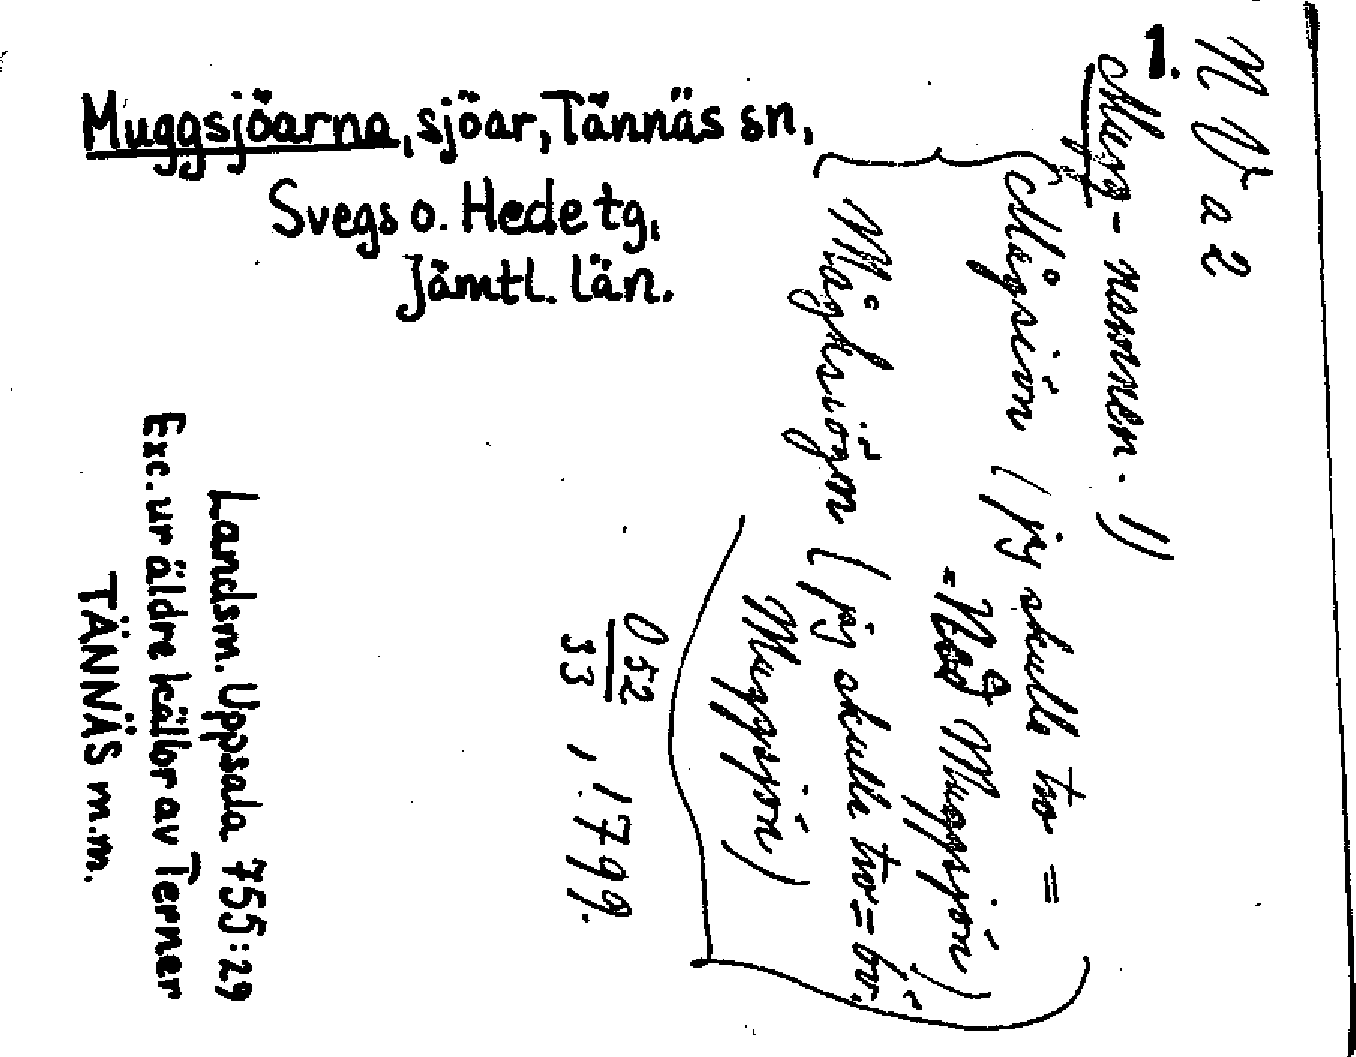 Muggsjöarna, sjöar, Tännäs sn,
Svegs o. Hede tg,
Jämtl. län.
N V a 2
1.
Mugg-namnen. 1)
Mågsiön (jg skulle tro =
= Nöd Muggsjön)
Måghsiögn (jg skulle tro = Öv.
Muggsjön)
O 52
33 , 1799.
Landsm. Uppsala 755:29
Exc. ur äldre källor av Terner
TÄNNÄS m.m.